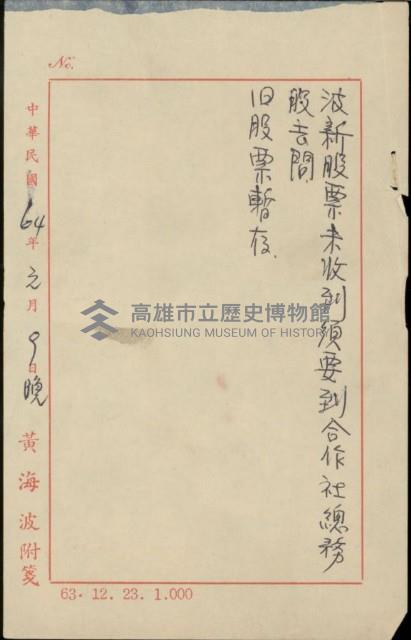 No.
波新股票未收到須要到合作社總務
股去問
旧股票暫存、
中華民國64年元月9日晚
黃海波附箋
高雄市立歷史博物館
KAOHSIUNG MUSEUM OF HISTORY
63. 12. 23. 1.000